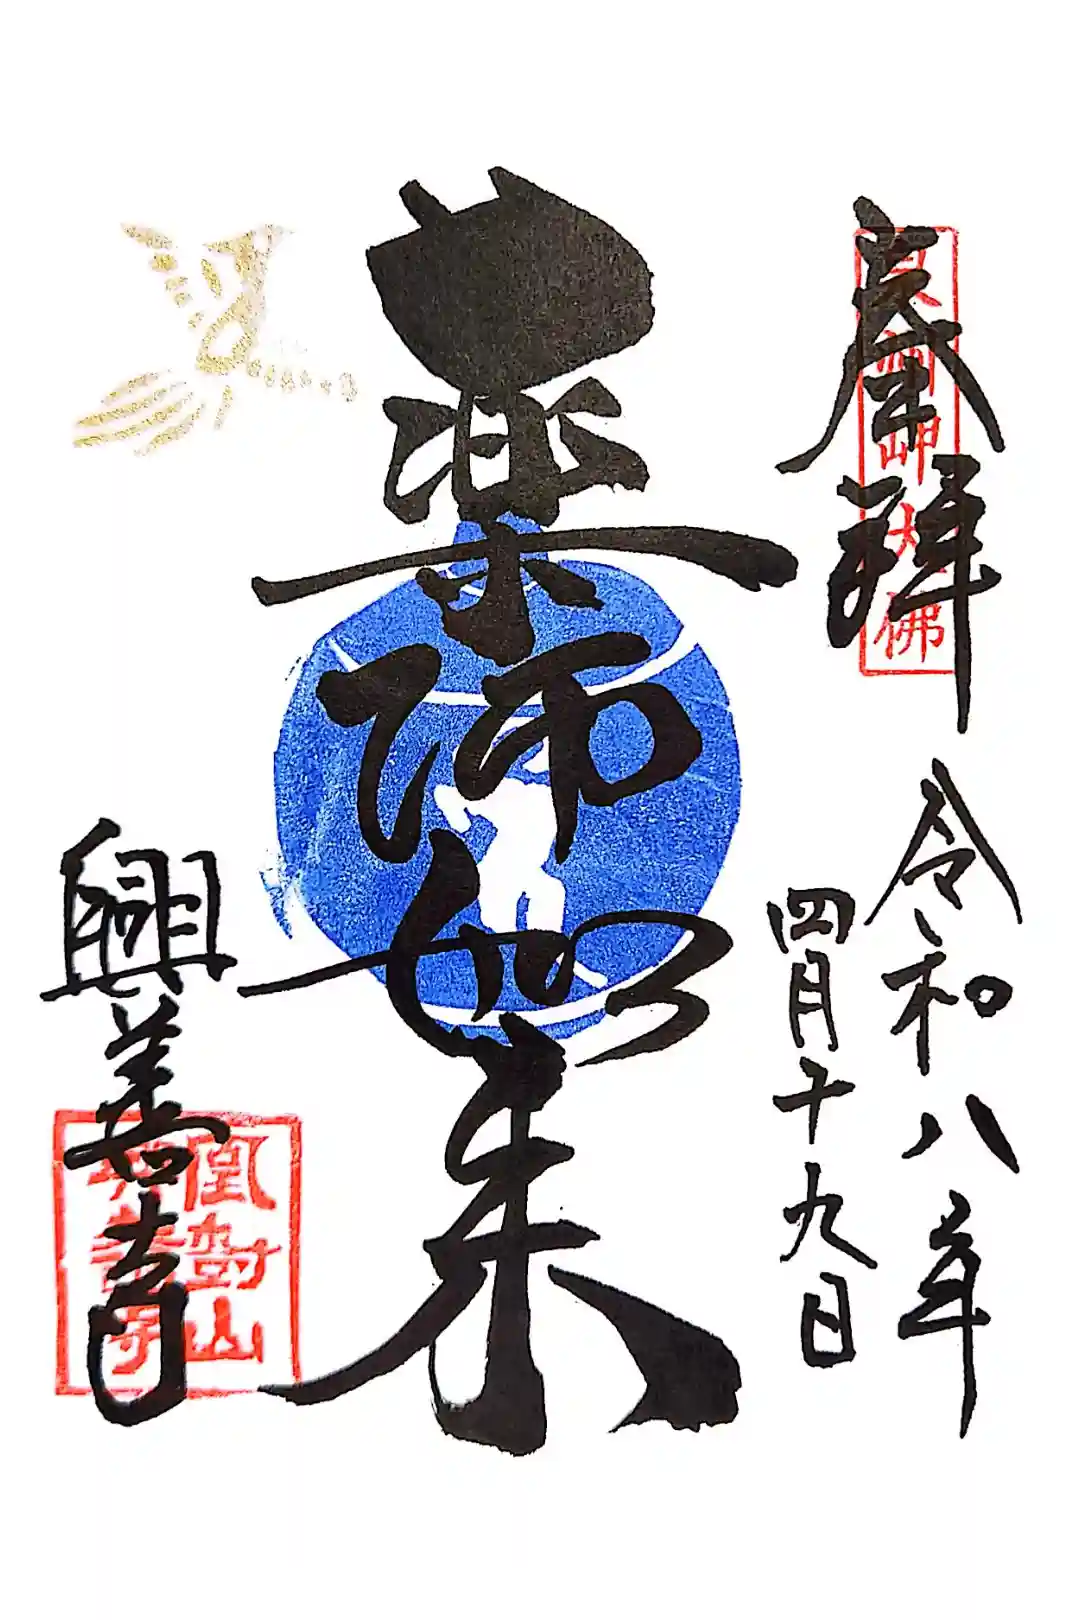 奉拝
泉州岬大佛
令和八年
四月十九日
薬師如来
興善寺
凰樹山
興善寺